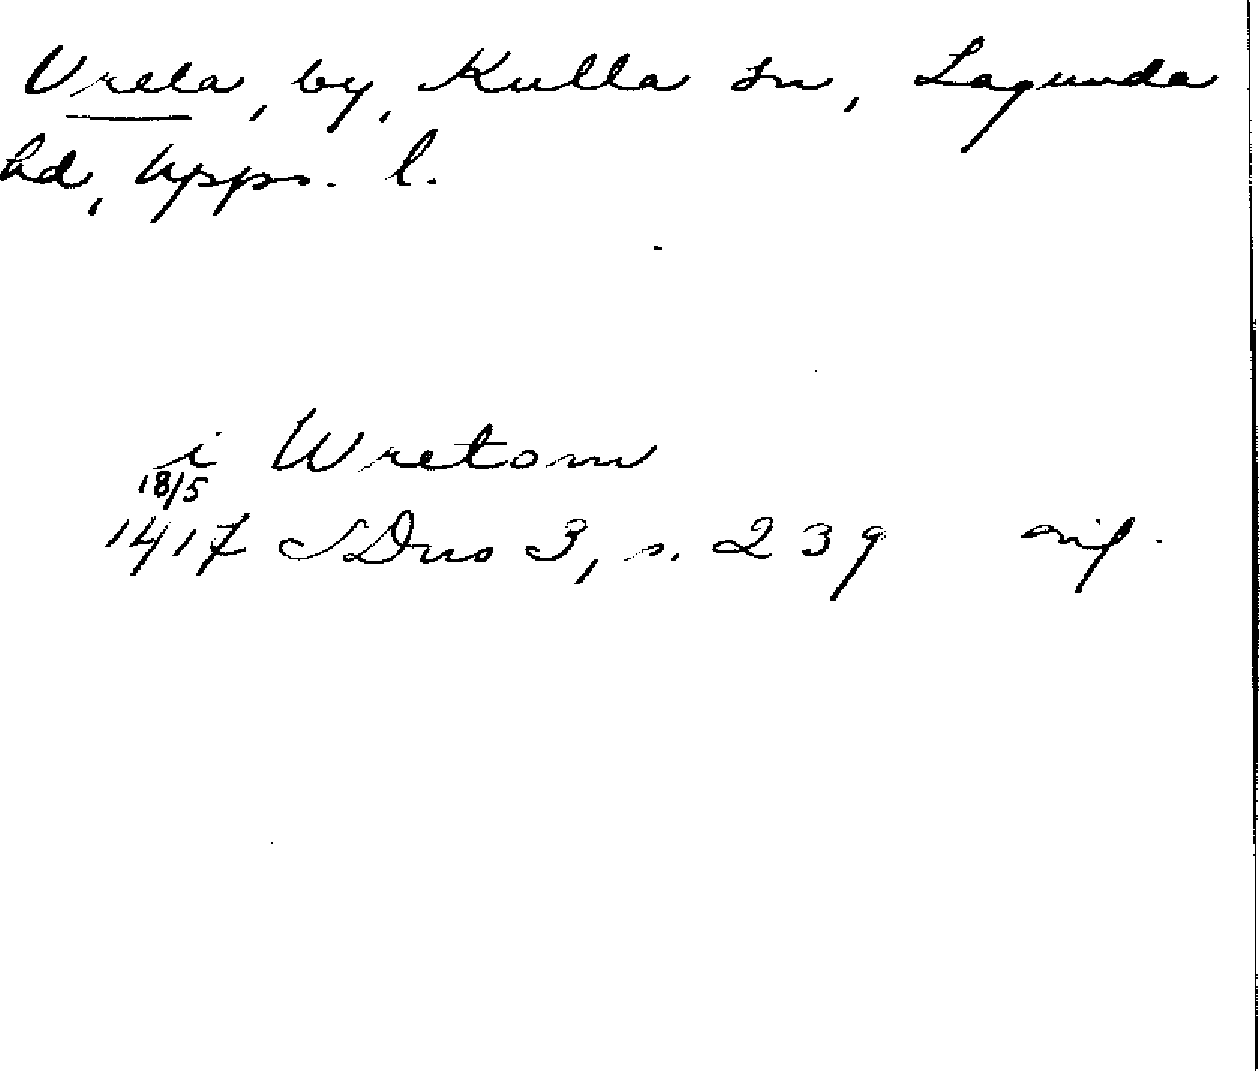 Vreta, by, Kulla sn, Lagunda
hd, Upps. l.
i Wretom
18/5
1417 SDns 3, s. 239 orig.